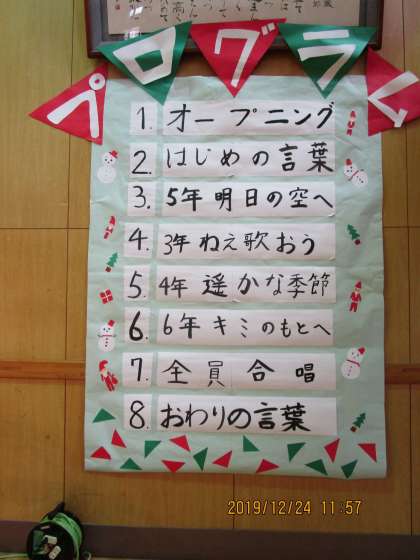 プログラム
1. オープニング
2. はじめの言葉
3. 5年 明日の空へ
4. 3年 ねえ歌おう
5. 4年 遥かな季節
6. 6年 キミのもとへ
7. 全員 合唱
8. おわりの言葉
2019/12/24 11:57